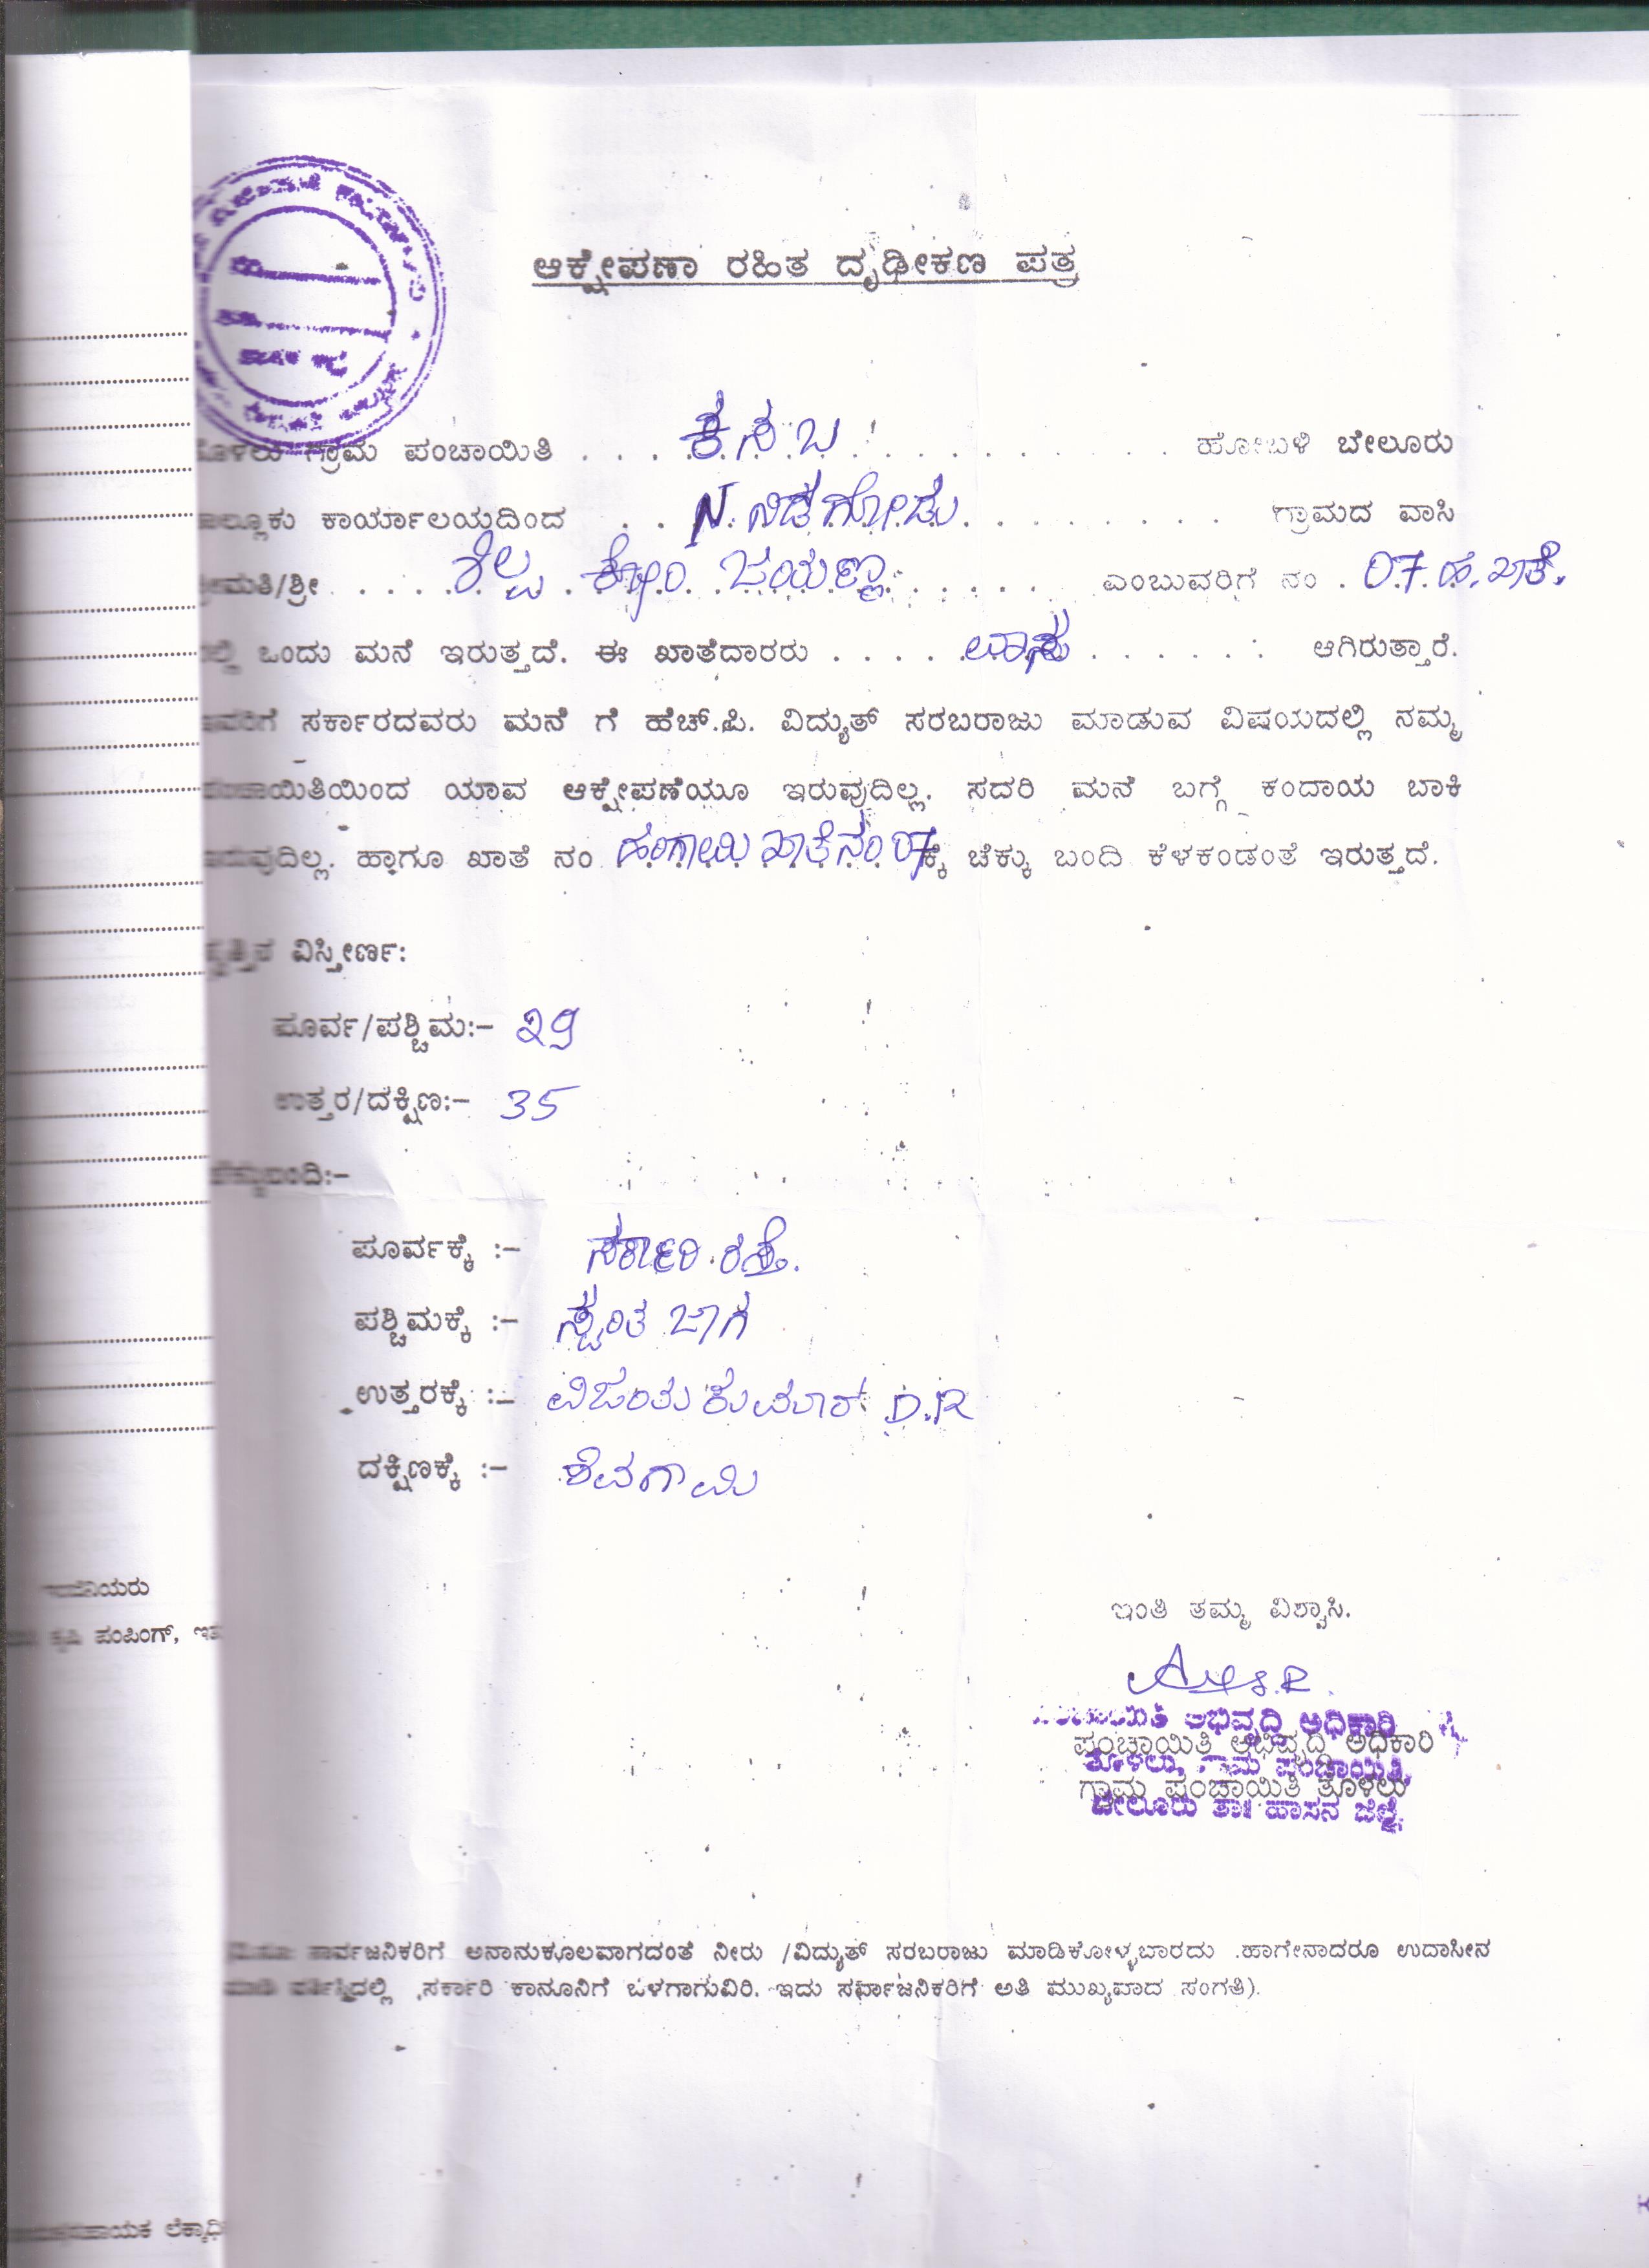 ಆಕ್ಷೇಪಣಾ ರಹಿತ ದೃಢೀಕಣ ಪತ್ರ
ಗ್ರಾಮ ಪಂಚಾಯಿತಿ . . . . ಕಸಬ . . . . . . . . . . ಹೋಬಳಿ ಬೇಲೂರು
ಕಾರ್ಯಾಲಯದಿಂದ . . N. ನಿಡಗೋಡು . . . . . . . . ಗ್ರಾಮದ ವಾಸಿ
ಶ್ರೀಮತಿ/ಶ್ರೀ . . . . ಶಿಲ್ಪ ಕೋಂ ಜಯಣ್ಣ . . . . . . ಎಂಬುವರಿಗೆ ನಂ . 07 ಹ. ಖಾತೆ.
ಒಂದು ಮನೆ ಇರುತ್ತದೆ. ಈ ಖಾತೆದಾರರು . . . . . . . . . . ಆಗಿರುತ್ತಾರೆ.
ಇವರಿಗೆ ಸರ್ಕಾರದವರು ಮನೆ ಗೆ ಹೆಚ್.ಪಿ. ವಿದ್ಯುತ್ ಸರಬರಾಜು ಮಾಡುವ ವಿಷಯದಲ್ಲಿ ನಮ್ಮ
ಪಂಚಾಯಿತಿಯಿಂದ ಯಾವ ಆಕ್ಷೇಪಣೆಯೂ ಇರುವುದಿಲ್ಲ. ಸದರಿ ಮನೆ ಬಗ್ಗೆ ಕಂದಾಯ ಬಾಕಿ
ಇರುವುದಿಲ್ಲ. ಹಾಗೂ ಖಾತೆ ನಂ ಹಂಗಾಮಿ ಖಾತೆ ನಂ 07ಕ್ಕೆ ಚೆಕ್ಕು ಬಂದಿ ಕೆಳಕಂಡಂತೆ ಇರುತ್ತದೆ.
ವಿಸ್ತೀರ್ಣ:
ಪೂರ್ವ/ಪಶ್ಚಿಮ:- 29
ಉತ್ತರ/ದಕ್ಷಿಣ:- 35
ಚೆಕ್ಕುಬಂದಿ:-
ಪೂರ್ವಕ್ಕೆ :- ಸರ್ಕಾರಿ ರಸ್ತೆ.
ಪಶ್ಚಿಮಕ್ಕೆ :- ಸ್ವಂತ ಜಾಗ
ಉತ್ತರಕ್ಕೆ :- ವಿಜಯಕುಮಾರ್ D.R
ದಕ್ಷಿಣಕ್ಕೆ :- ಶಿವಗಾಮಿ
ಕೃಷಿ ಪಂಪಿಂಗ್,
ಇಂತಿ ತಮ್ಮ ವಿಶ್ವಾಸಿ.
ಅಭಿವೃದ್ಧಿ ಅಧಿಕಾರಿ
ಪಂಚಾಯಿತಿ ಅಭಿವೃದ್ಧಿ ಅಧಿಕಾರಿ
ತೊಳಲು, ಗ್ರಾಮ ಪಂಚಾಯಿತಿ,
ಗ್ರಾಮ ಪಂಚಾಯಿತಿ ತೊಳಲು
ಬೇಲೂರು ತಾ॥ ಹಾಸನ ಜಿಲ್ಲೆ.
ಸಾರ್ವಜನಿಕರಿಗೆ ಅನಾನುಕೂಲವಾಗದಂತೆ ನೀರು /ವಿದ್ಯುತ್ ಸರಬರಾಜು ಮಾಡಿಕೋಳ್ಳಬಾರದು .ಹಾಗೇನಾದರೂ ಉದಾಸೀನ
ಮಾಡಿ ,ಸರ್ಕಾರಿ ಕಾನೂನಿಗೆ ಒಳಗಾಗುವಿರಿ. ಇದು ಸರ್ವಾಜನಿಕರಿಗೆ ಅತಿ ಮುಖ್ಯವಾದ ಸಂಗತಿ).